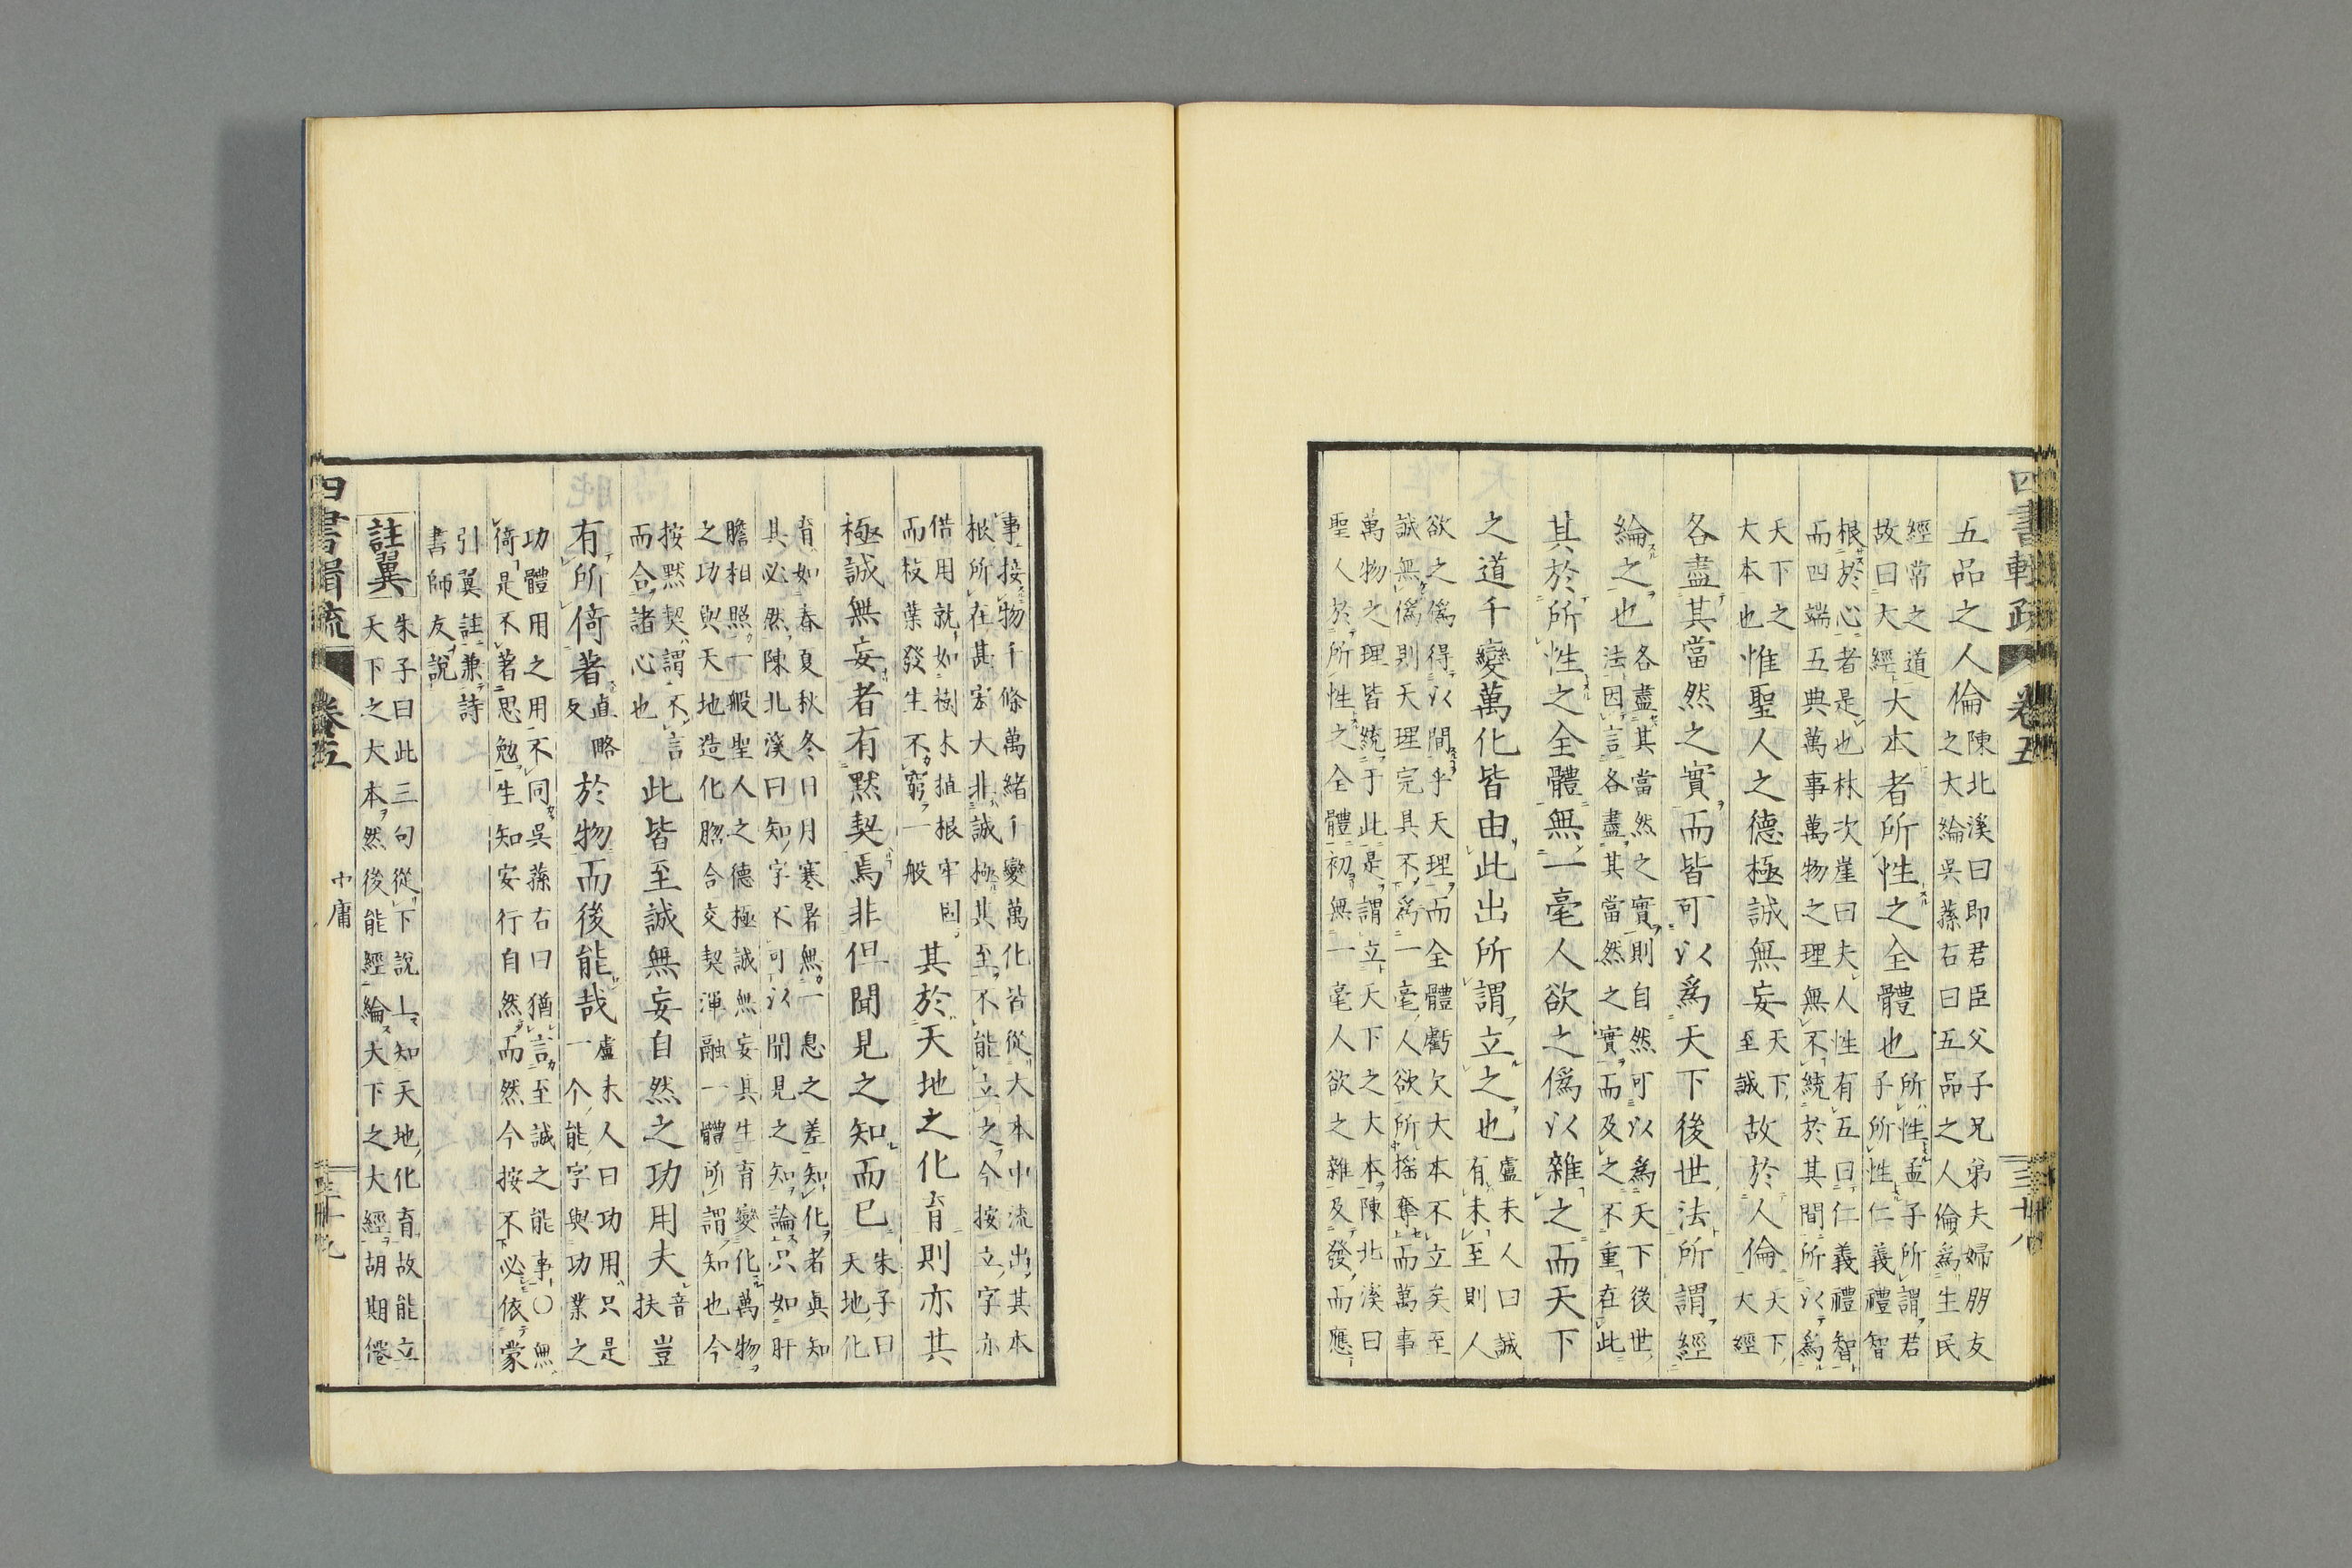 四書輯疏 卷五 三十八
五品之人倫陳北溪曰即君臣父子兄弟夫婦朋友
之大綸吳蓀右曰五品之人倫爲生民
經常之道
故曰大經大本者所性之全體也所性孟子所謂君
子所性仁義禮智
根於心者是也林次崖曰夫人性有五曰仁義禮智
而四端五典萬事萬物之理無不統於其間所以爲
天下之
大本也惟聖人之德極誠無妄天下
至誠故於人倫天下
大經
各盡其當然之實而皆可以爲天下後世法所謂經
綸之也各盡其當然之實則自然可以爲天下後世
法因言各盡其當然之實而及之不重在此
其於所性之全體無一毫人欲之僞以雜之而天下
之道千變萬化皆由此出所謂立之也盧未人曰誠
有未至則人
欲之僞得以間乎天理而全體虧欠大本不立矣至
誠無僞則天理完具不爲一毫人欲所搖奪而萬事
萬物之理皆統于此是謂立天下之大本陳北溪曰
聖人於所性之全體初無一毫人欲之雜及發而應
事接物千條萬緒千變萬化皆從大本中流出其本
根所在甚宏大非誠極其至不能立之今按立字亦
借用就如樹木植根牢固
而枝葉發生不窮一般其於天地之化育則亦其
極誠無妄者有默契焉非但聞見之知而已朱子曰
天地化
育如春夏秋冬日月寒暑無一息之差知化者眞知
其必然陳北溪曰知字不可以聞見之知論只如肝
膽相照一般聖人之德極誠無妄具生育變化萬物
之功與天地造化脗合交契渾融一體所謂知也今
按默契謂不言
而合諸心也此皆至誠無妄自然之功用夫音
扶豈
有所倚著直略
反於物而後能哉盧未人曰功用只是
一个能字與功業之
功體用之用不同吳蓀右曰猶言至誠之能事〇無
倚是不著思勉生知安行自然而然今按不必依蒙
引翼註兼詩
書師友說
註翼朱子曰此三句從下說上知天地化育故能立
天下之大本然後能經綸天下之大經胡期僊
四書輯疏 卷五 中庸 三十九